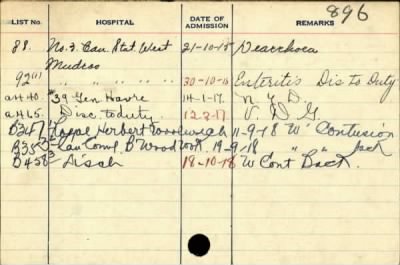 896
LIST No. HOSPITAL DATE OF ADMISSION REMARKS
88. No. 3. Can. Stat. West 21-10-15 Diarrhoea
Mudros
92 " " " " " 30-10-15 Enteritis Dis to Duty
a440. #39 Gen Havre 14-1-17. N.Y.D.
a465. Disc. to duty. 12-3-17. V.D.G.
B347 Royal Herbert Woolwich 11-9-18 W Contusion
B353 Can Conv. B Wood 19-9-18 " " Back
B458 Disch 18-10-18 W Cont Back.